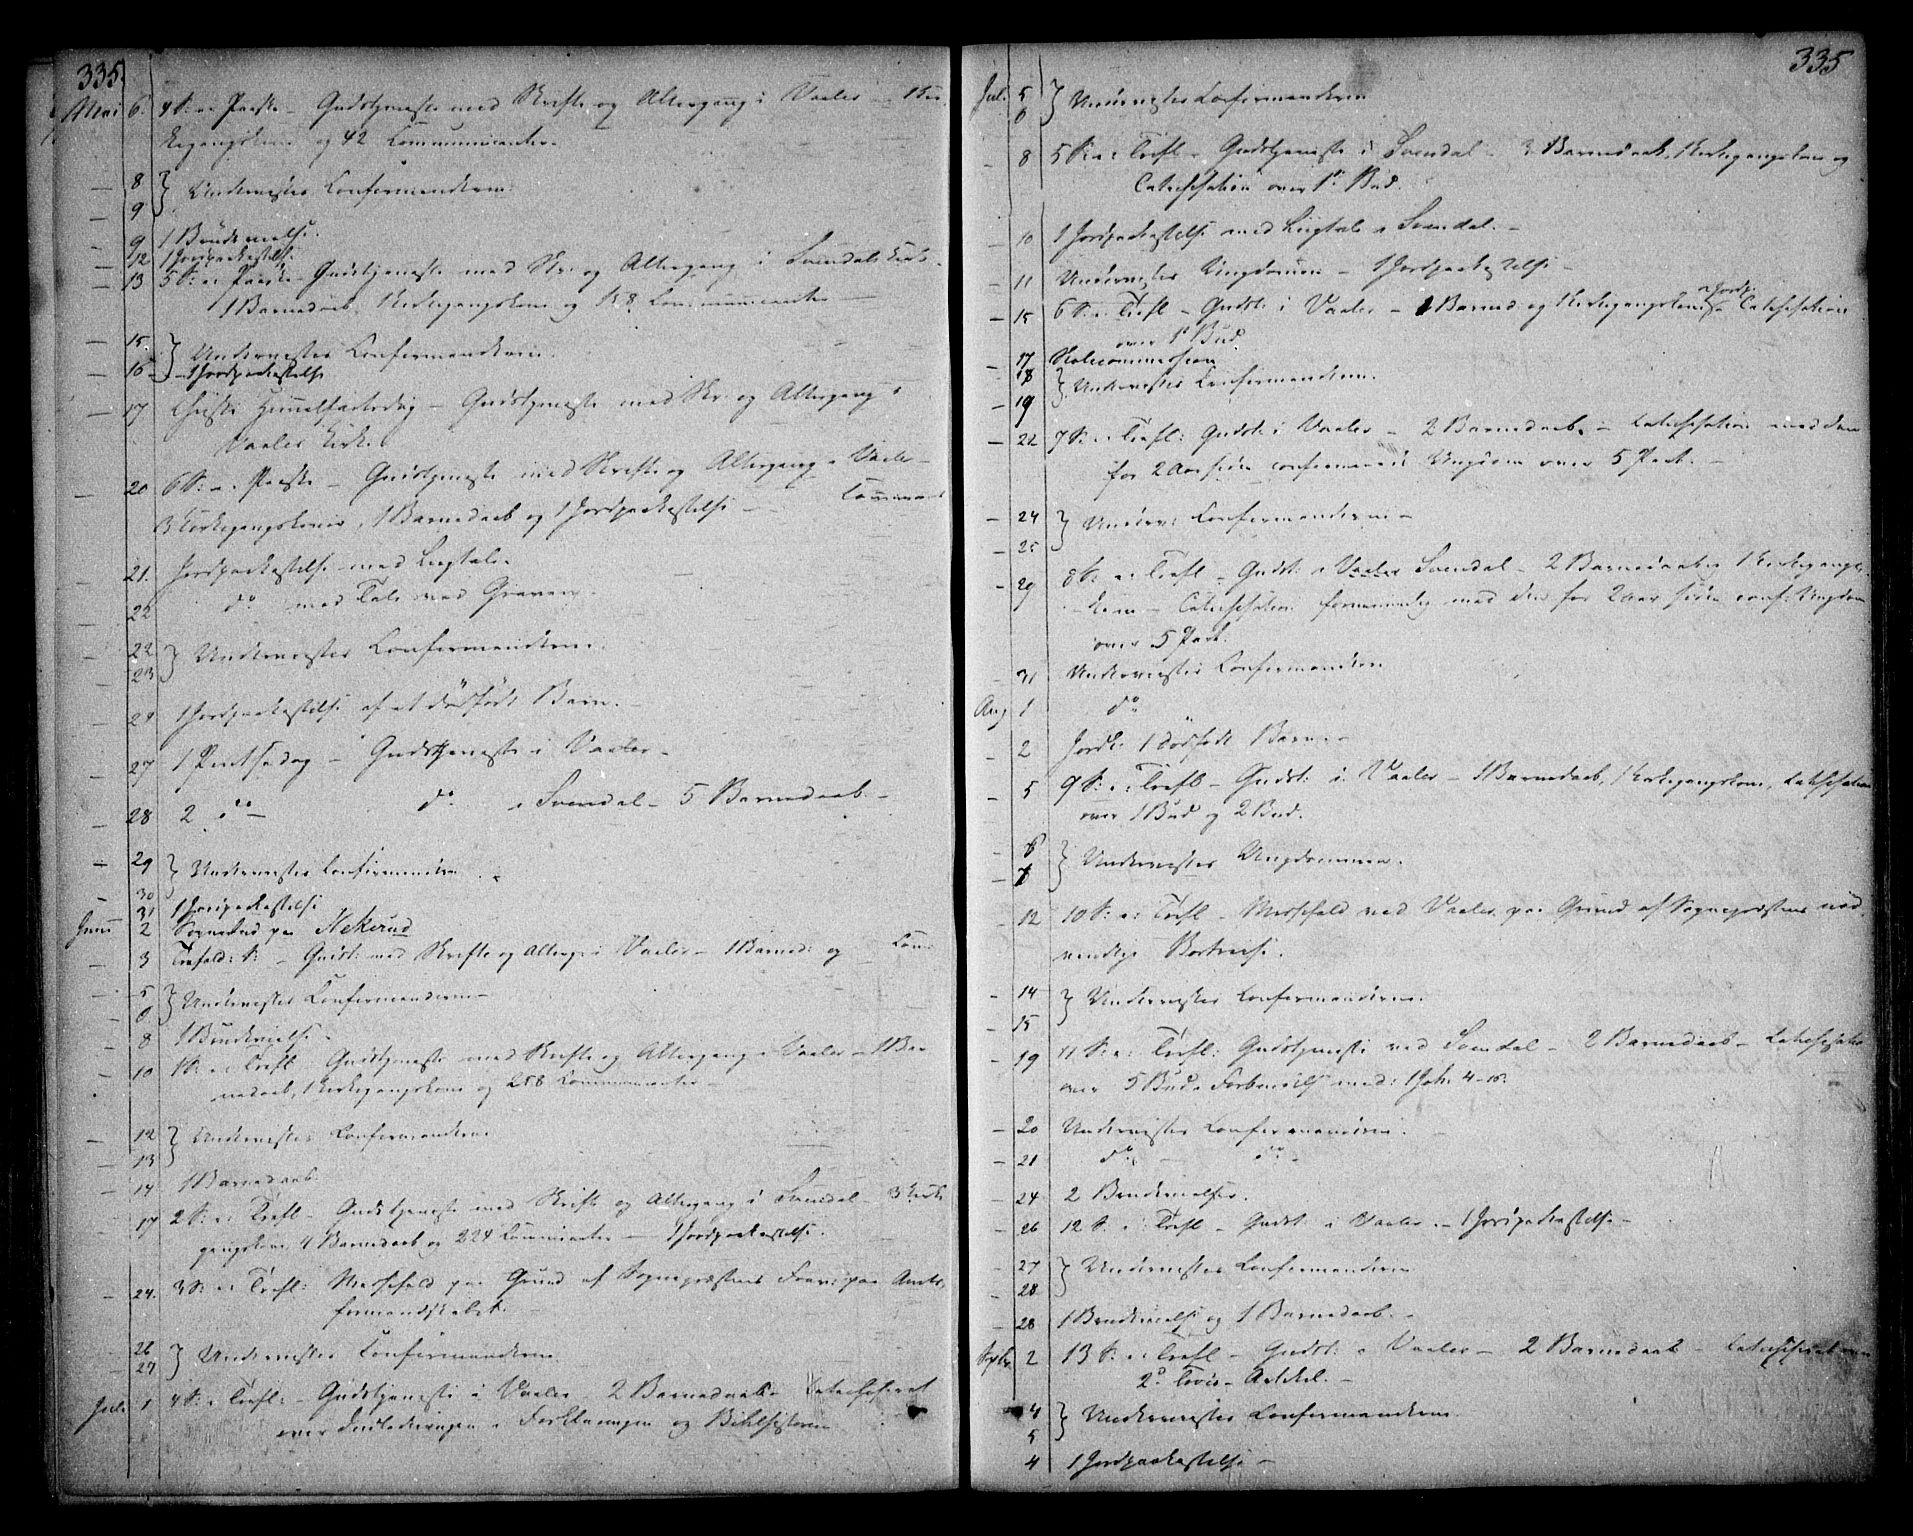 335.
Mai 6. 4 S: e: Paaske – Gudstjeneste med Skrifte og Altergang i Vaaler – 1 Kir
kegangskone og 42 Communicanter.
– 8 } Underviister Confirmanderne.
– 9
– 9 1 Brudevielse.
– 12 1 Jordpaakastelse
– 13 5 S: e: Paaske – Gudstjeneste med Skr: og Altergang i Svendal Kirke
1 Barnedaab, 1 Kirkegangskone og 158 Communicanter –
– 15 } Underviister Confirmanderne.
– 16 – 1 Jordpaakastelse
– 17 Christi Himmelfartsdag – Gudstjeneste med Skr: og Altergang i
Vaaler Kirke.
– 20 6 S: e: Paaske – Gudstjeneste med Skrifte og Altergang i Vaaler –
3 Kirkegangskoner, 1 Barnedaab og 1 Jordpaakastelse –
21. Jordpaakastelse med Liigtale.
22 do med Tale ved Graven.
– 22 } Underviister Confirmanderne.
– 23
– 24 1 Jordpaakastelse af et dødfødt Barn.
– 27 1 Pintsedag – Gudstjeneste i Vaaler –
– 28 2 do – do i Svendal – 5 Barnedaab. –
– 29 } Underviister Confirmanderne
– 30
– 31 1 Jordpaakastelse
Juni 2 Sognebud paa Nekerud
– 3 Trefold: S: – Gudst: med Skrifte og Alterg: i Vaaler – 1 Barned: og Com:
– 5 } Underviister Confirmanderne –
– 6
– 8 1 Brudevielse.
– 10 1 S: e: Trefl – Gudstjeneste med Skrifte og Altergang i Vaaler – 1 Bar
nedaab, 1 Kirkegangskone og 258 Communicanter –
– 12 } Underviister Confirmanderne
– 13
– 14 1 Barnedaab.
– 17 2 S: e: Trefl – Gudstjeneste med Skrifte og Altergang i Svendal – 3 Kirke
gangskone, 4 Barnedaab og 224 Communicanter – 1 Jordpaakastelse.
– 24. 3 S: e: Trefl: Messefald paa Grund af Sognepræstens paa Amts,
formandskabet.
– 26 } Underviister Confirmanderne
– 27
Jul. 1 4 S: e Trefl: – Gudstjeneste i Vaaler 2 Barnedaab – Catechiseret
over Indledningen i Forklaringen og Bibelhistorien
335
Jul. 5 } Underviister Confirmanderne
6
– 8 5 S: e: Trefl – Gudstjeneste i Svendal – 3 Barnedaab, 1 Kirkegangskone og
Catechisation over 1st Bud.
– 10 1 Jordpaakastelse med Liigtale i Svendal. –
– 11 Underviister Ungdommen – 1 Jordpaakastelse –
– 15 6 S: e: Trefl – Gudst: i Vaaler – 1 Barned og 1 Kirkegangskone Catechisation
over 1st Bud
– 17 Skolecommission
– 18 } Underviister Confirmanderne.
– 19
– 22 7 S: e: Trefl: Gudst: i Vaaler – 2 Barnedaab. – Catechisation med den
for 2 Aar siden confirmerede Ungdom over 5 Part. –
– 24 } Underv: Confirmanderne –
– 25
– 29 8 S: e: Trefl – Gudst: i Vaaler Svendal – 2 Barnedaab, 1 Kirkegangs,
kone – Catechisation fornemmelig med den for 2 Aar siden conf: Ungdom
over 5 Part.
– 31 Underviister Confirmanderne
Aug 1 do
– 2 Jordk: 1 dødfødt Barn –
– 5 9 S: e: Trefl – Gudst: i Vaaler – 1 Barnedaab, 1 Kirkegangskone, Catechisation
over 1 Bud og 2 Bud.
– 6 } Underviister Ungdommen.
– 7
– 12 10 S: e: Trefl – Messefald ved Vaaler paa Grund af Sognepræstens nød,
vendige Bortreise.
– 14 } Underviister Confirmanderne.
– 15
– 19 11 S: e: Trefl: Gudstjeneste ved Svendal – 2 Barnedaab – Catechisation
over 5 Bud i Forbindelse med: 1 Joh. 4–15.
– 20 Underviister Confirmanderne.
– 21 do – do –
– 24 2 Brudevielser.
– 26 12 S: e: Trefl – Gudst: i Vaaler. – 1 Jordpaakastelse –
– 27 } Underviister Confirmanderne
– 28
– 28 1 Brudevielse og 1 Barnedaab. –
Sptbr. 2 13 S: e: Trefl – Gudst: i Vaaler – 2 Barnedaab – Catechisation
2den Troes-Artikel. –
– 4 } Underviister Confirmanderne
5
4 1 Jordpaakastelse –